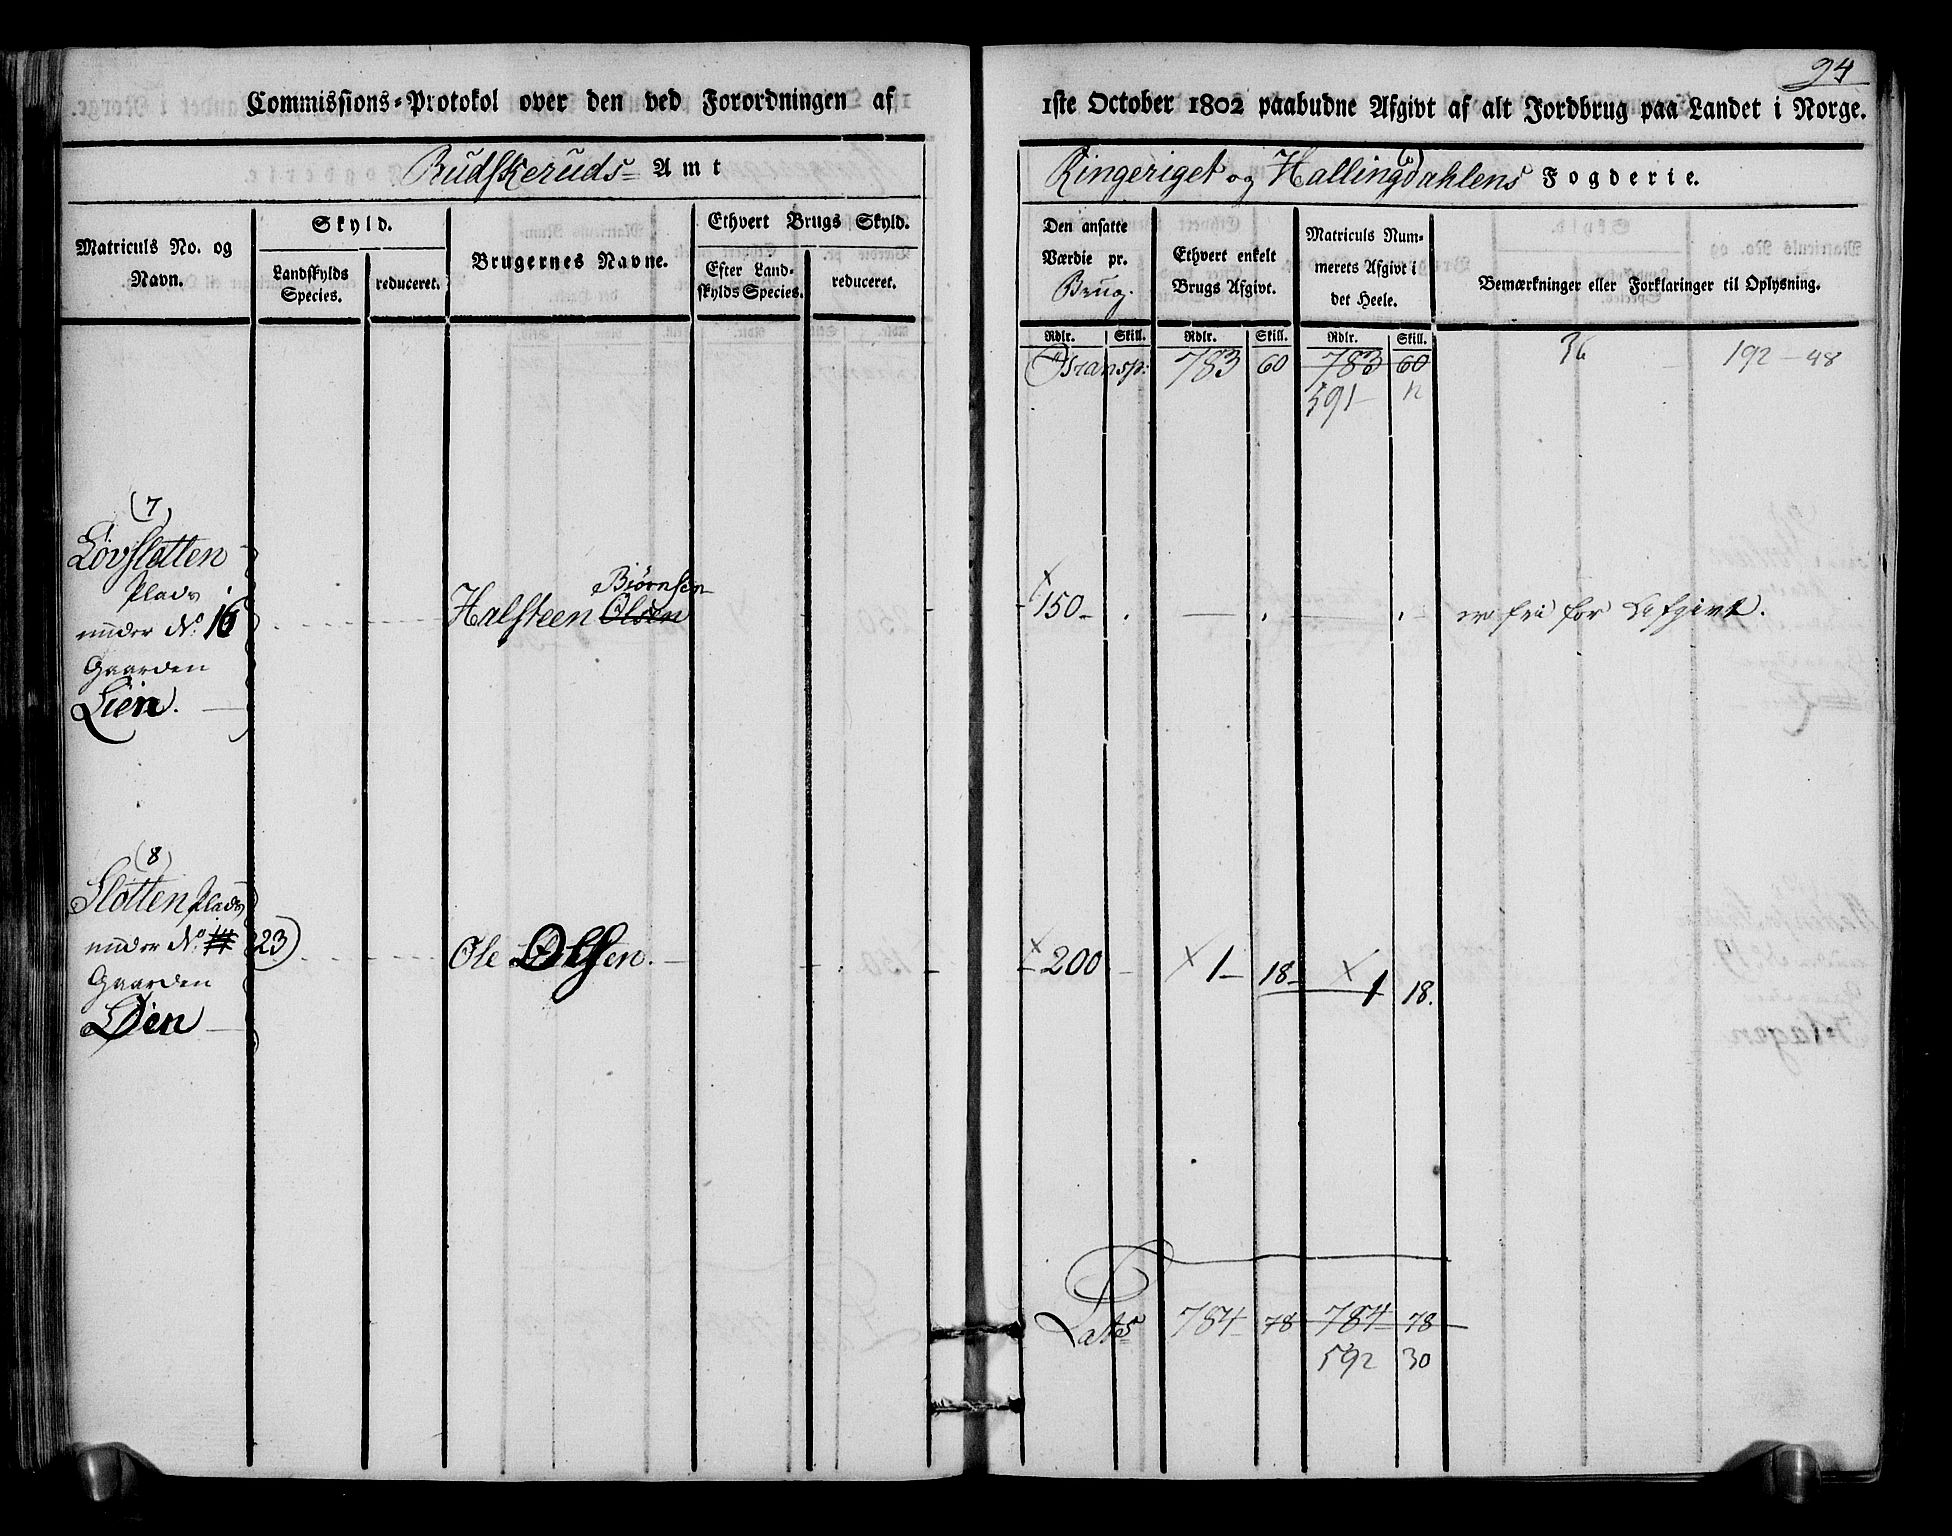 94
Commissions-Protokol over den ved Forordningen af
1ste October 1802 paabudne Afgivt af alt Jordbrug paa Landet i Norge.
Budskeruds Amt
Ringeriget og Hallingdahlens Fogderie.
Matriculs No. og Navn.
Skyld.
Landskylds Species.
reduceret.
Brugernes Navne.
Ethvert Brugs Skyld.
Efter Landskylds Species.
reduceret.
Den ansatte Værdie pr. Brug.
Ethvert enkelt Brugs Afgivt.
Matriculs Nummerets Afgivt i det Heele.
Bemærkninger eller Forklaringer til Oplysning.
Rdlr. Skill. Rdlr. Skill. Rdlr. Skill.
Transp: 783 60 783 60 36 192-48
591 12
(7)
Løvslotten
Plads
under No. 16
Gaarden
Lien.
Halsteen Olsen Biørnsen
150 er fri for Afgivt.
(8)
Slotten Plads
under No. 23)
Gaarden
Lien
Ole Olsen.
200 1 18 1 18.
Lats 784 78 784 78
592 30